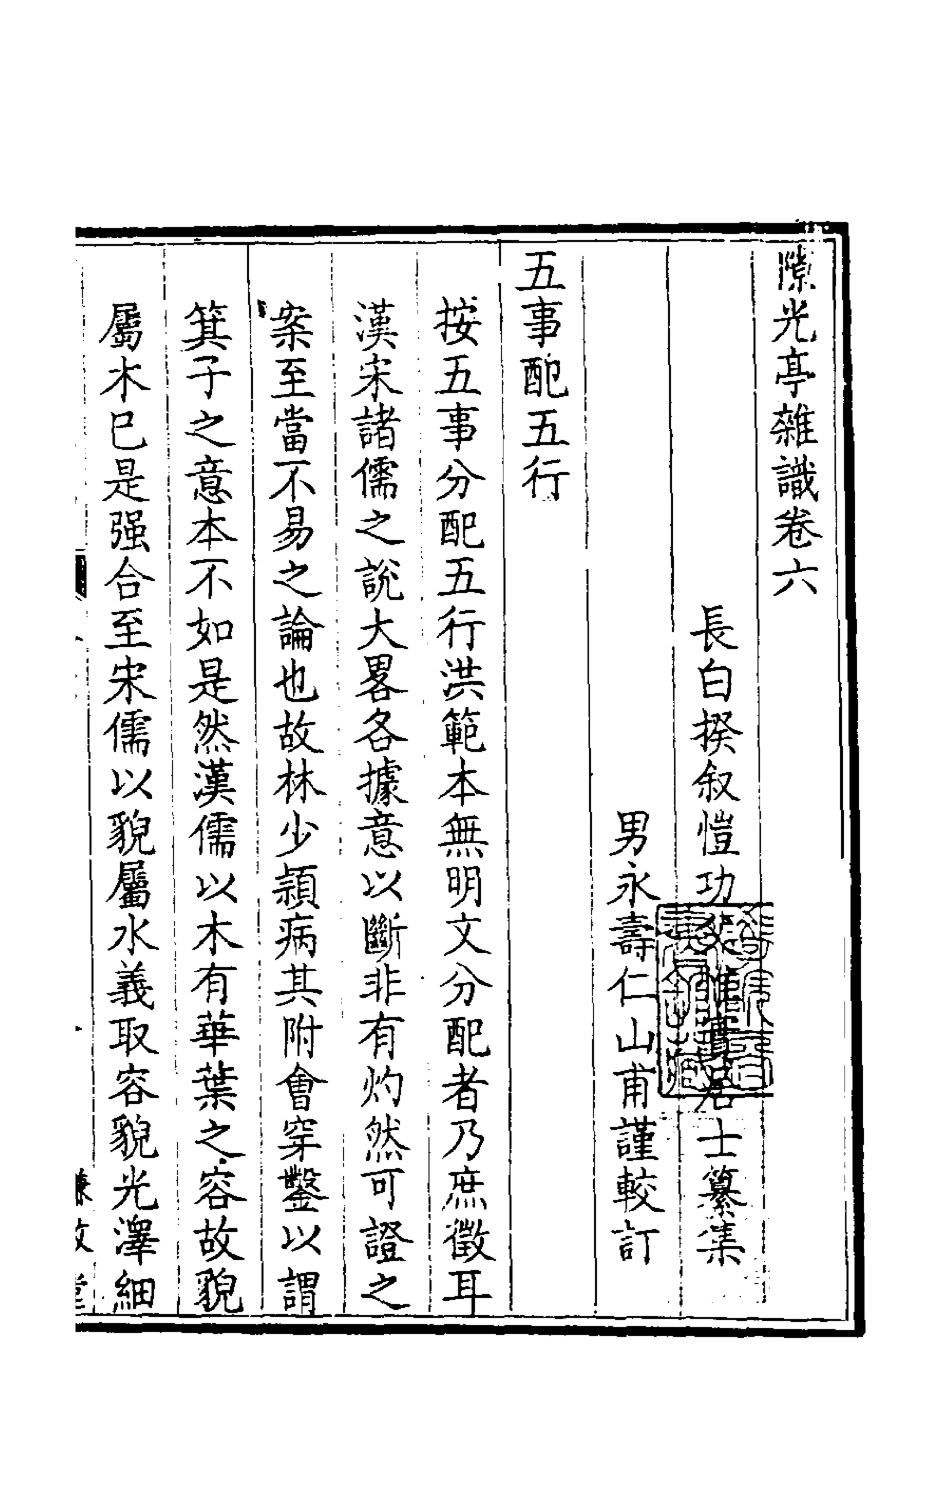 隙光亭雜識卷六
長白揆叙愷功父惟實居士纂集
男永壽仁山甫謹較訂
五事配五行
按五事分配五行洪範本無明文分配者乃庶徵耳
漢宋諸儒之說大畧各據意以斷非有灼然可證之
案至當不易之論也故林少頴病其附會穿鑿以謂
箕子之意本不如是然漢儒以木有華葉之容故貌
屬木已是强合至宋儒以貌屬水義取容貌光澤細
謙牧堂